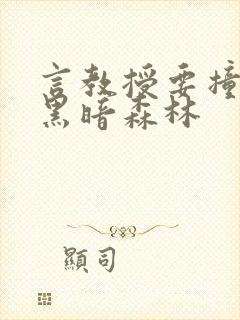 言教授要撞
黑暗森林
顯司